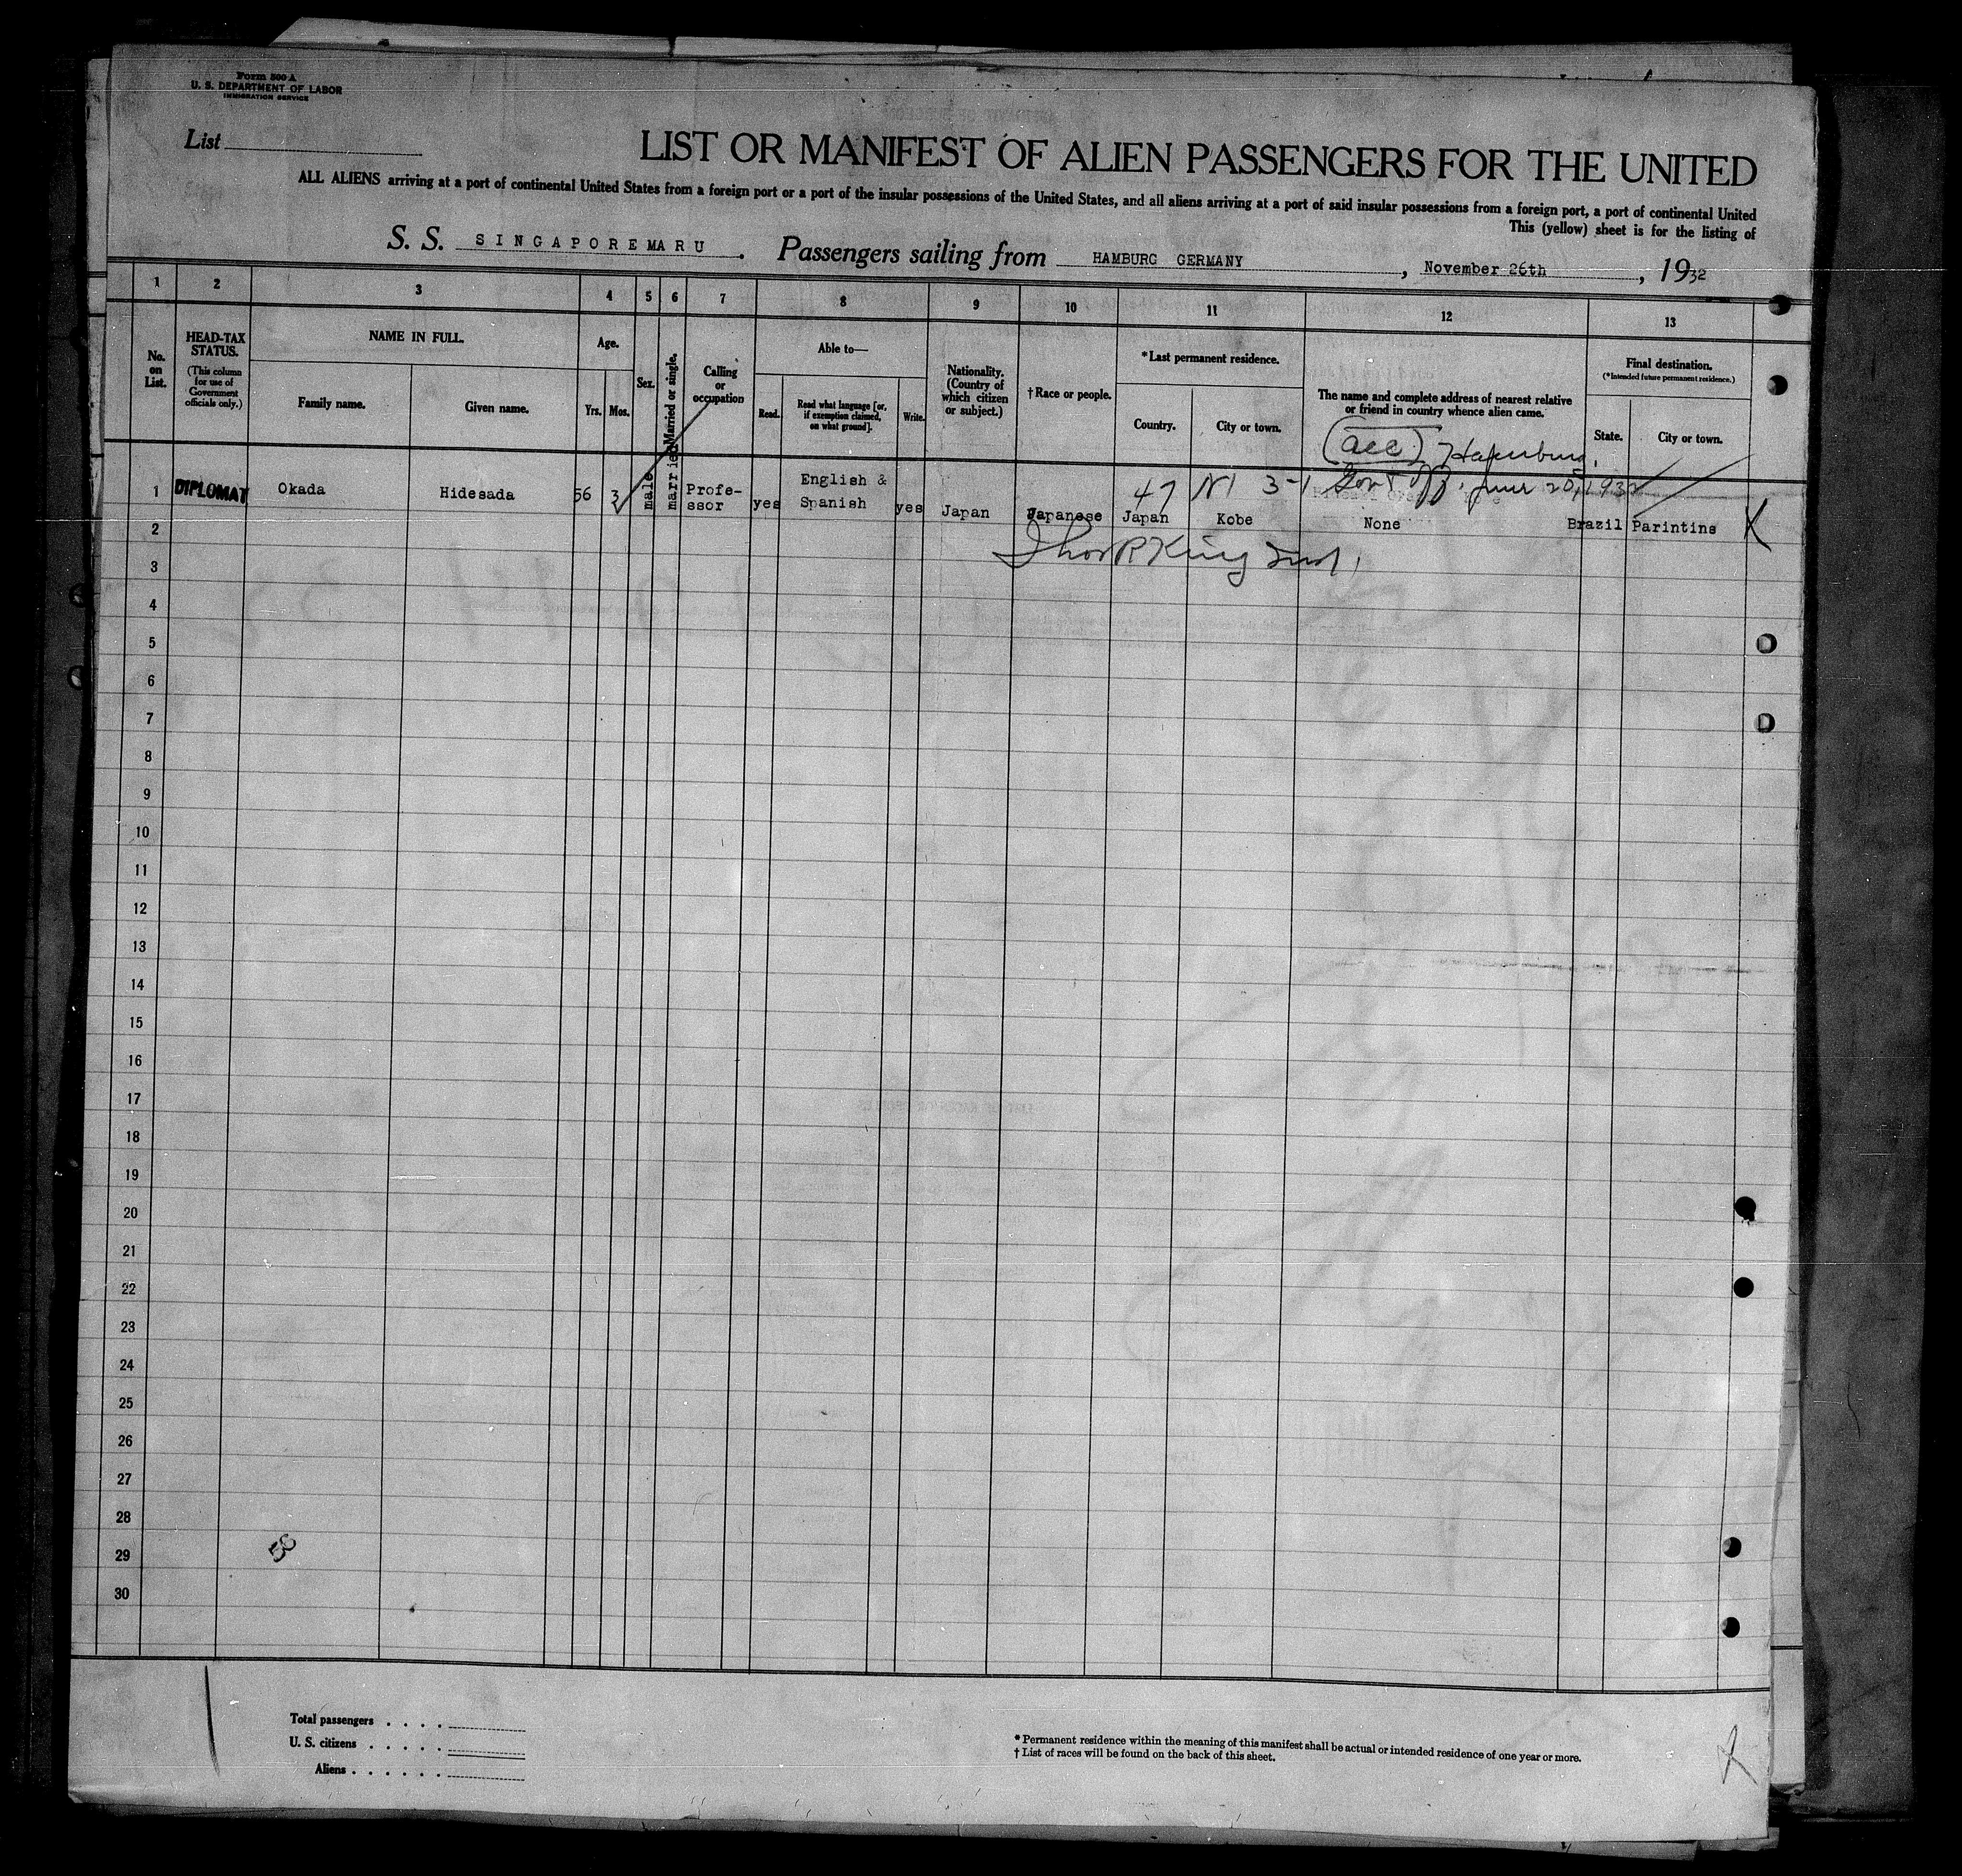 Form 500 A
U. S. DEPARTMENT OF LABOR
IMMIGRATION SERVICE
List
LIST OR MANIFEST OF ALIEN PASSENGERS FOR THE UNITED
ALL ALIENS arriving at a port of continental United States from a foreign port or a port of the insular possessions of the United States, and all aliens arriving at a port of said insular possessions from a foreign port, a port of continental United
This (yellow) sheet is for the listing of
S. S. SINGAPORE MARU . Passengers sailing from HAMBURG GERMANY , November 26th , 1932
1 2 3 4 5 6 7 8 9 10 11 12 13
No. on List.
HEAD-TAX STATUS.
(This column for use of Government officials only.)
NAME IN FULL.
Family name.
Given name.
Age.
Yrs.
Mos.
Sex.
Married or single.
Calling or occupation
Able to—
Read.
Read what language [or, if exemption claimed, on what ground].
Write.
Nationality. (Country of which citizen or subject.)
†Race or people.
*Last permanent residence.
Country.
City or town.
The name and complete address of nearest relative or friend in country whence alien came.
Final destination.
(*Intended future permanent residence.)
State.
City or town.
47 N1 3-1 Gov't Off. June 20, 1932
1 DIPLOMAT Okada Hidesada 56 3 male married Profe-ssor yes English & Spanish yes Japan Japanese Japan Kobe None Brazil Parintins X
2
3
4
5
6
7
8
9
10
11
12
13
14
15
16
17
18
19
20
21
22
23
24
25
26
27
28
29
30
Total passengers . . . .
U. S. citizens . . . . .
Aliens . . . . . .
* Permanent residence within the meaning of this manifest shall be actual or intended residence of one year or more.
† List of races will be found on the back of this sheet.